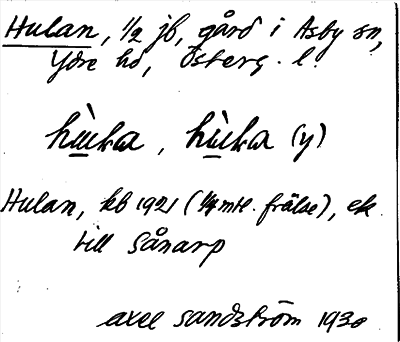 Hulan, 1/2 jb, gård i Asby sn,
Ydre hd, Österg. l.
Hulan, kb 1921 (1/4 mtl. frälse), ek.
till Sånarp
Axel Sandström 1930